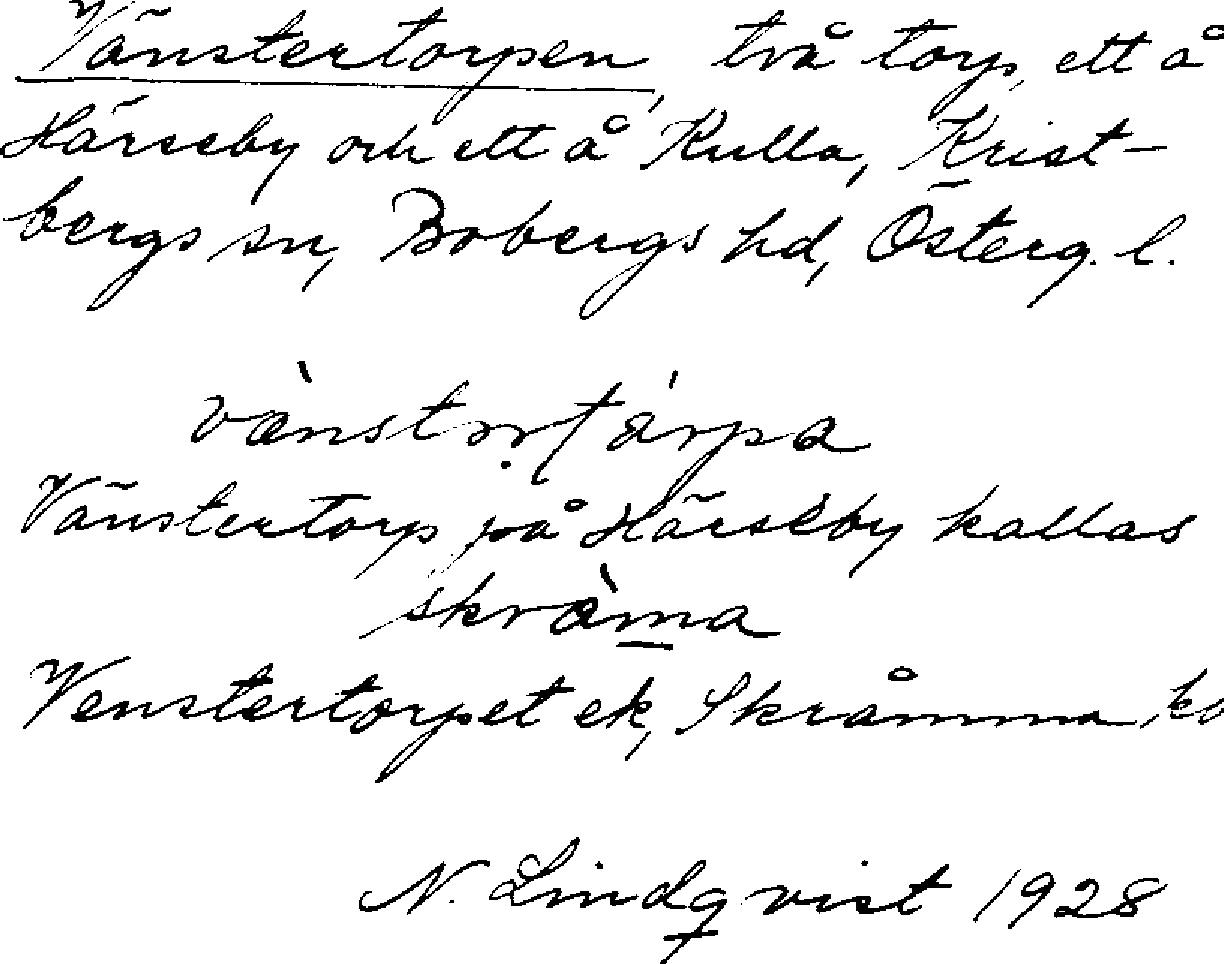 Vänstertorpen, två torp, ett å
Härseby och ett å Kulla, Krist-
bergs sn, Bobergs hd, Österg. l.
Vänstertorp på Härseby kallas
Venstertorpet ek, Skråmma
N. Lindqvist 1928